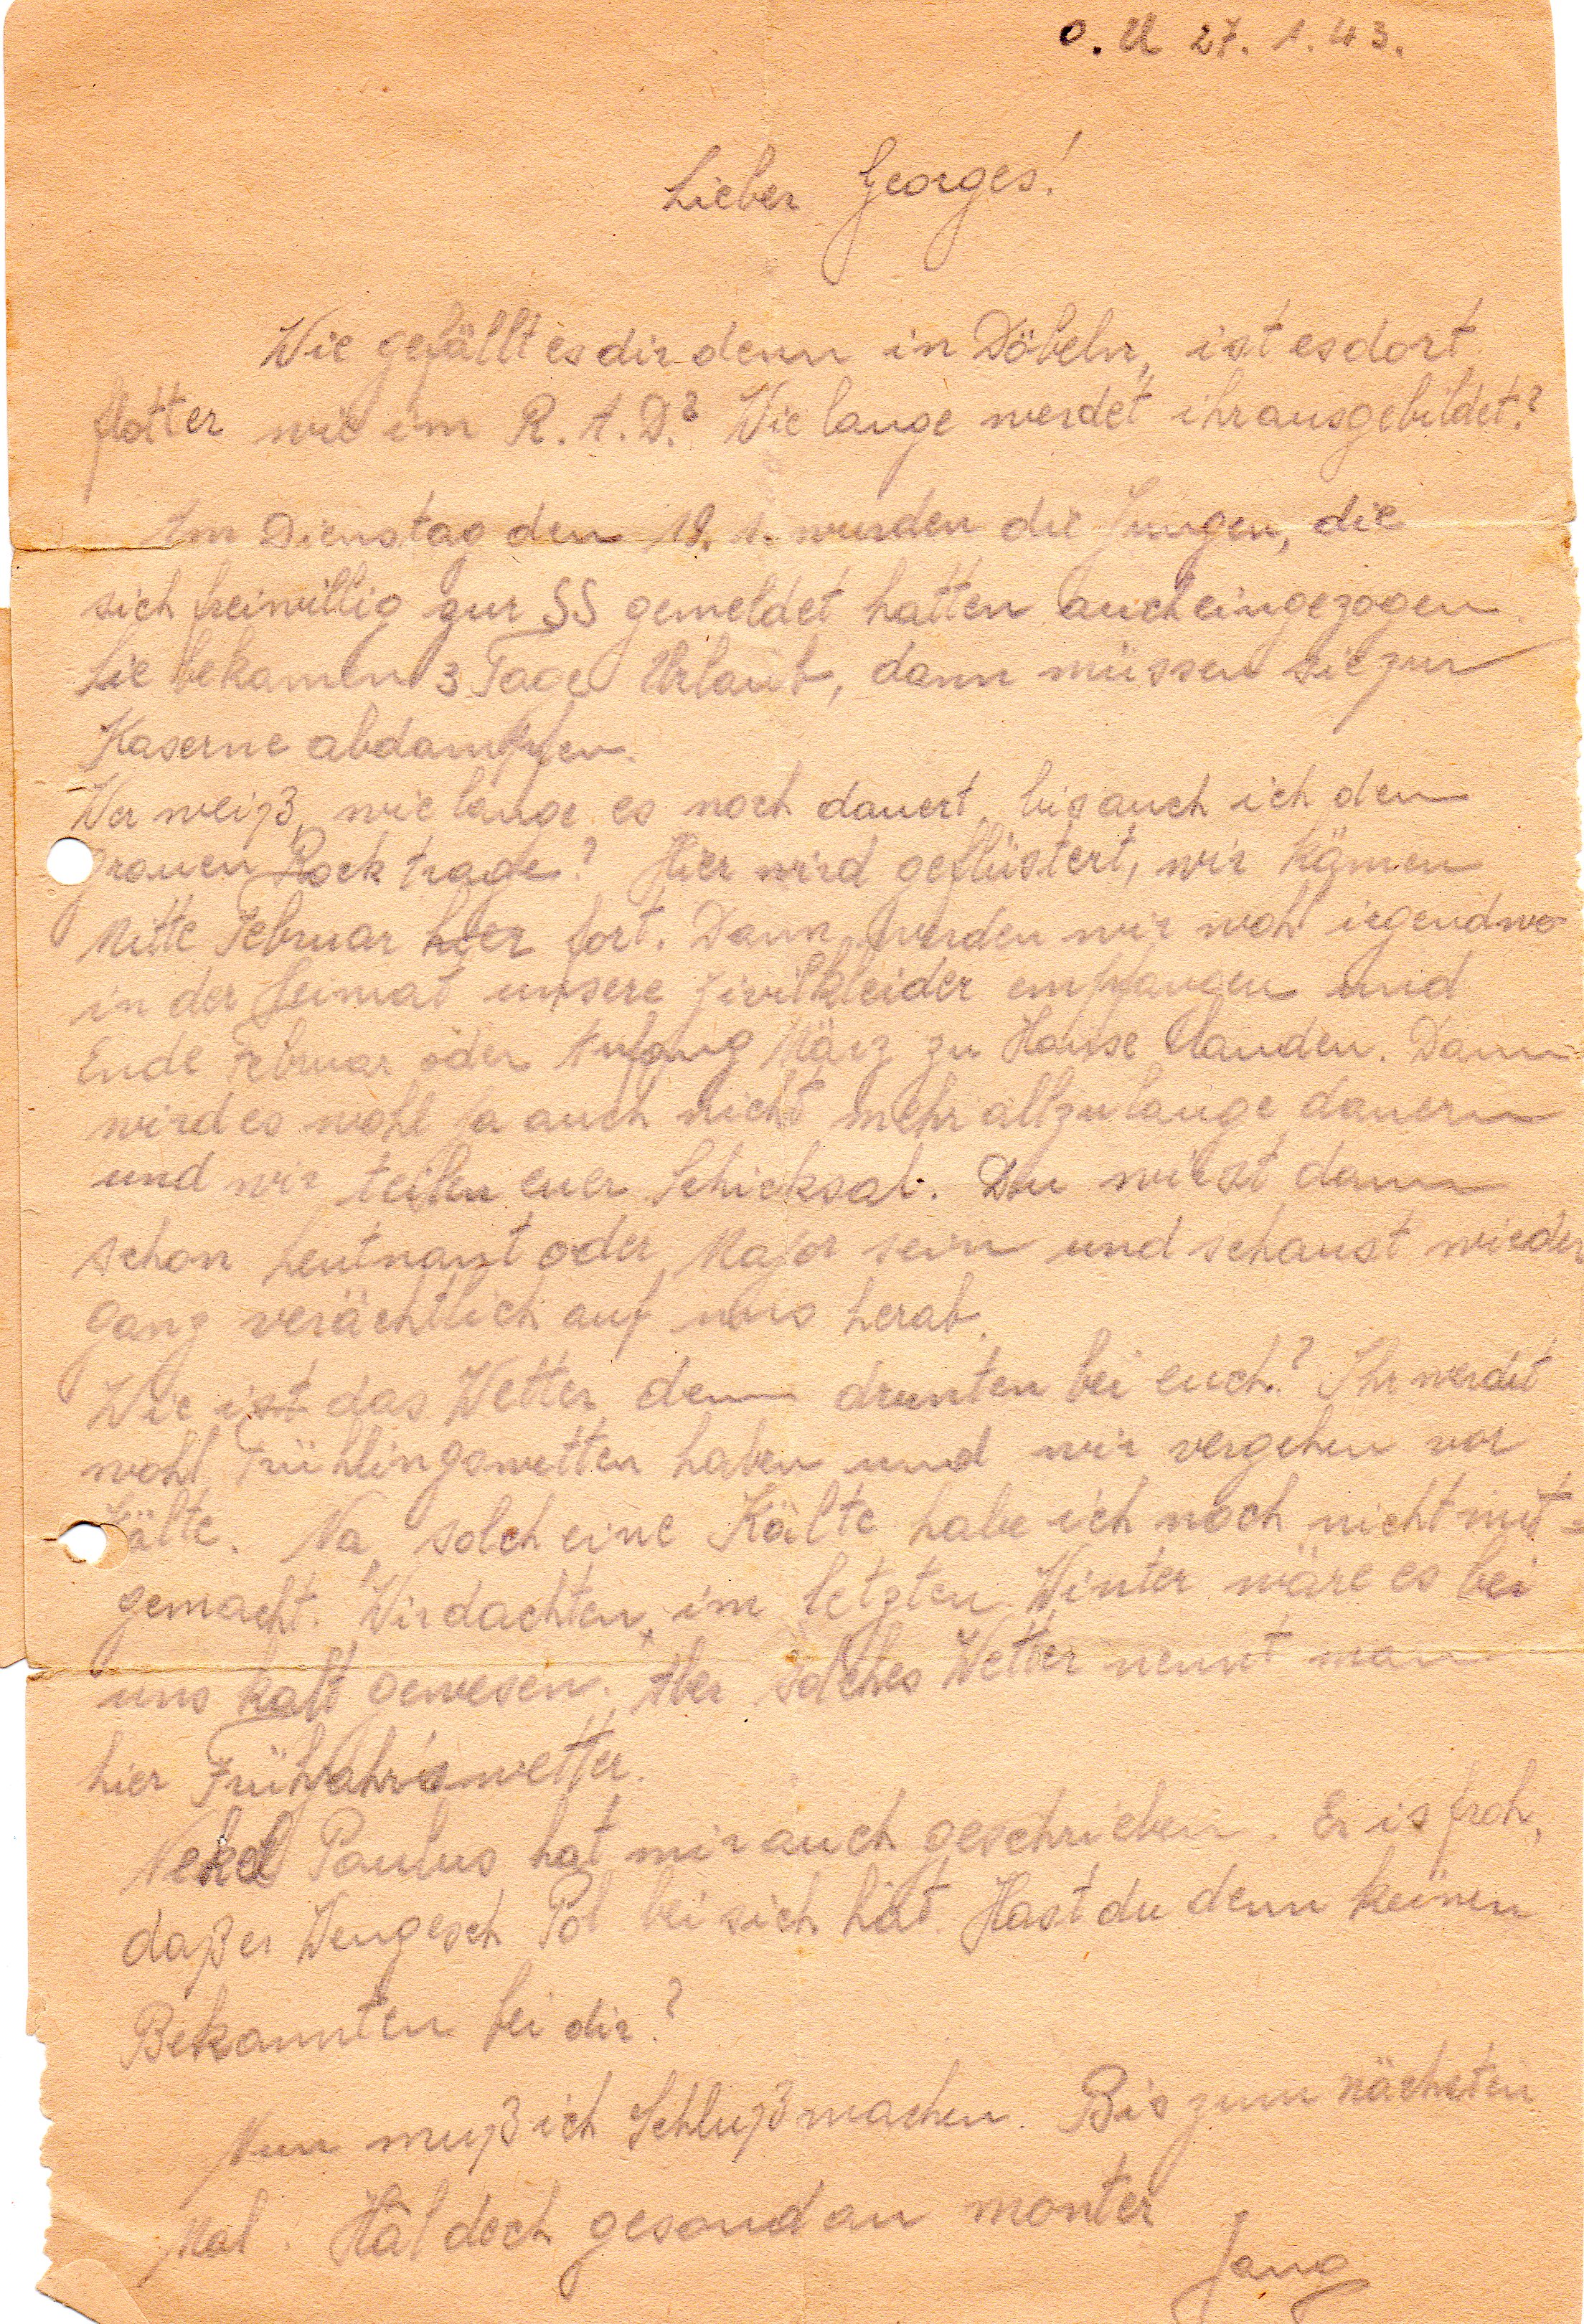 O.U 27. 1. 43.
Lieber Georges!
Wie gefällt es dir denn in Döbeln, ist es dort
flotter wie im R.A.D.? Wie lange werdet ihr ausgebildet?
Am Dienstag den 19. 1. wurden die Jungen, die
sich freiwillig zur SS gemeldet hatten auch eingezogen.
Sie bekamen 3 Tage Urlaub, dann müssen sie zur
Kaserne abdampfen.
Wer weiß, wie lange es noch dauert, bis auch ich den
grauen Rock trage? Hier wird geflüstert, wir kämen
Mitte Februar hier fort. Dann werden wir wohl irgendwo
in der Heimat unsere Zivilkleider empfangen und
Ende Februar oder Anfang März zu Hause landen. Dann
wird es wohl ja auch nicht mehr allzulange dauern
und wir teilen euer Schicksal. Du wirst dann
schon Leutnant oder Major sein und schaust wieder
ganz verächtlich auf uns herab.
Wie ist das Wetter denn drunten bei euch? Ihr werdet
wohl Frühlingswetter haben und wir vergehen vor
Kälte. Na, solch eine Kälte habe ich noch nicht mit=
gemacht. Wir dachten, im letzten Winter wäre es bei
uns kalt gewesen. Aber solches Wetter nennt man
hier Frühjahrswetter.
Nekel Paulus hat mir auch geschrieben. Er is froh,
daß er Wengesch Pol bei sich hat. Hast du denn keinen
Bekannten bei dir?
Nun muß ich Schluß machen. Bis zum nächsten
Mal. Hâl dech gesond an monter
Jang